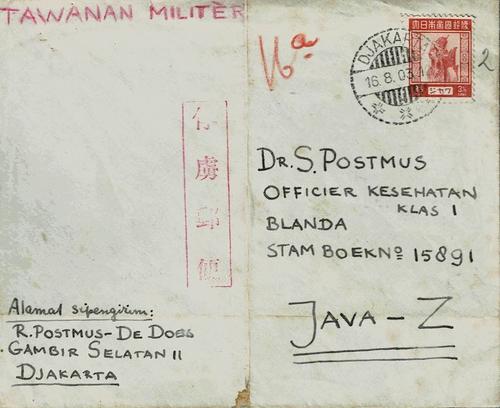 TAWANAN MILITER
俘虜郵便
DJAKARTA
16.8.03
大日本帝国郵便
ジャワ
2
DR. S. POSTMUS
OFFICIER KESEHATAN
KLAS I
BLANDA
STAM BOEK Nº 15891
JAVA – Z
Alamat sipengirim:
R. POSTMUS - DE DOES
GAMBIR SELATAN 11
DJAKARTA